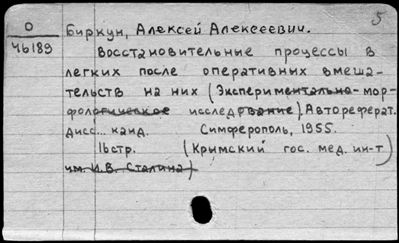 5
О Биркун, Алексей Алексеевич.
46189 Восстановительные процессы в
легких после оперативных вмеша-
тельств на них (Экспериментально-мор-
фологическое исследование). Автореферат.
дисс... канд. Симферополь, 1955.
16стр. (Крымский гос. мед. ин-т)
им. И.В. Сталина)